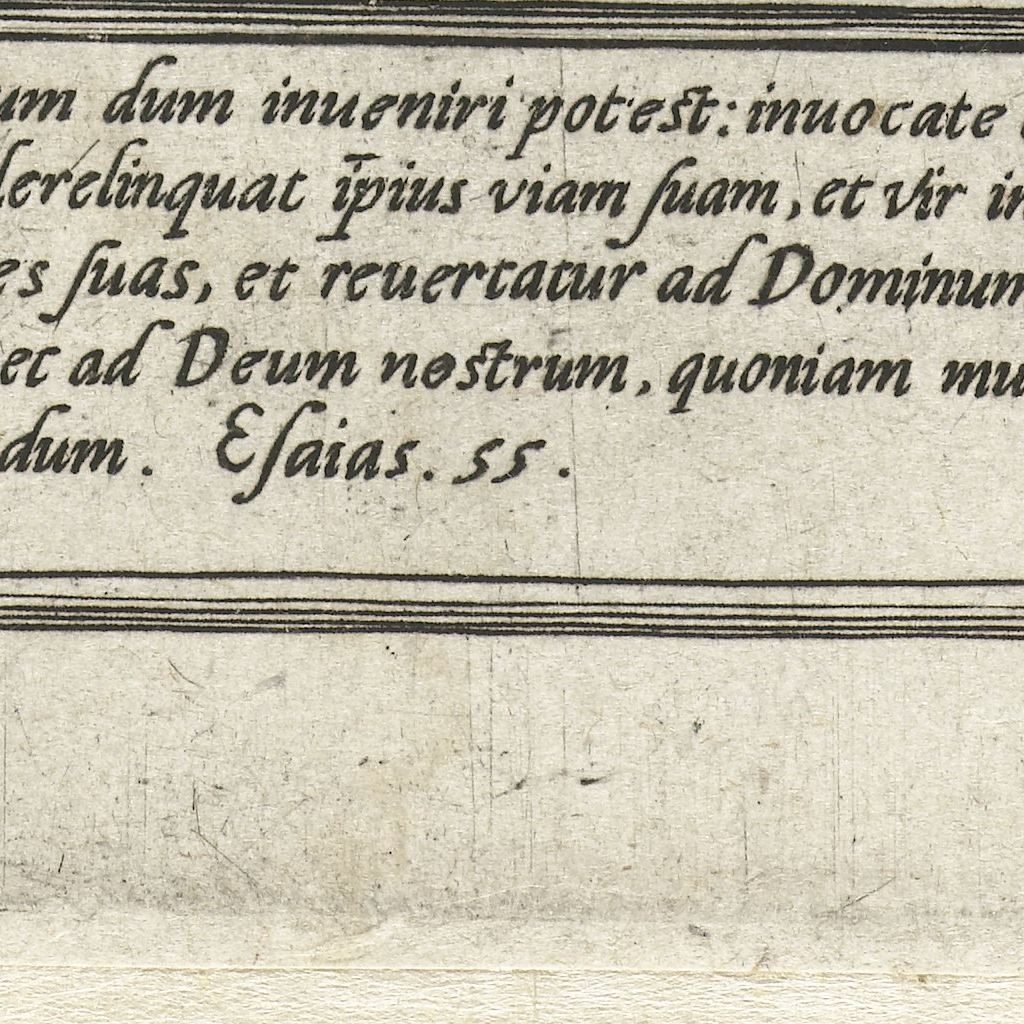 um dum inueniri potest: inuocate
derelinquat īpius viam suam, et vir in
es suas, et reuertatur ad Dominum
et ad Deum nostrum, quoniam mu
dum. Esaias. 55.